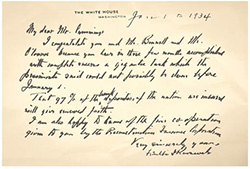 THE WHITE HOUSE
WASHINGTON
1934
My dear Mr. Cummings
I congratulate you and Mr. and Mr.
because you have in these few months accomplished
with complete success a gigantic task which the
pessimists said could not possibly be done before
January 1.
That 97% of the depositors of the nation are insured
will give renewed faith.
I am also happy to know of the fine co-operation
given to you by the Reconstruction Finance Corporation
Very sincerely yours
Franklin D. Roosevelt